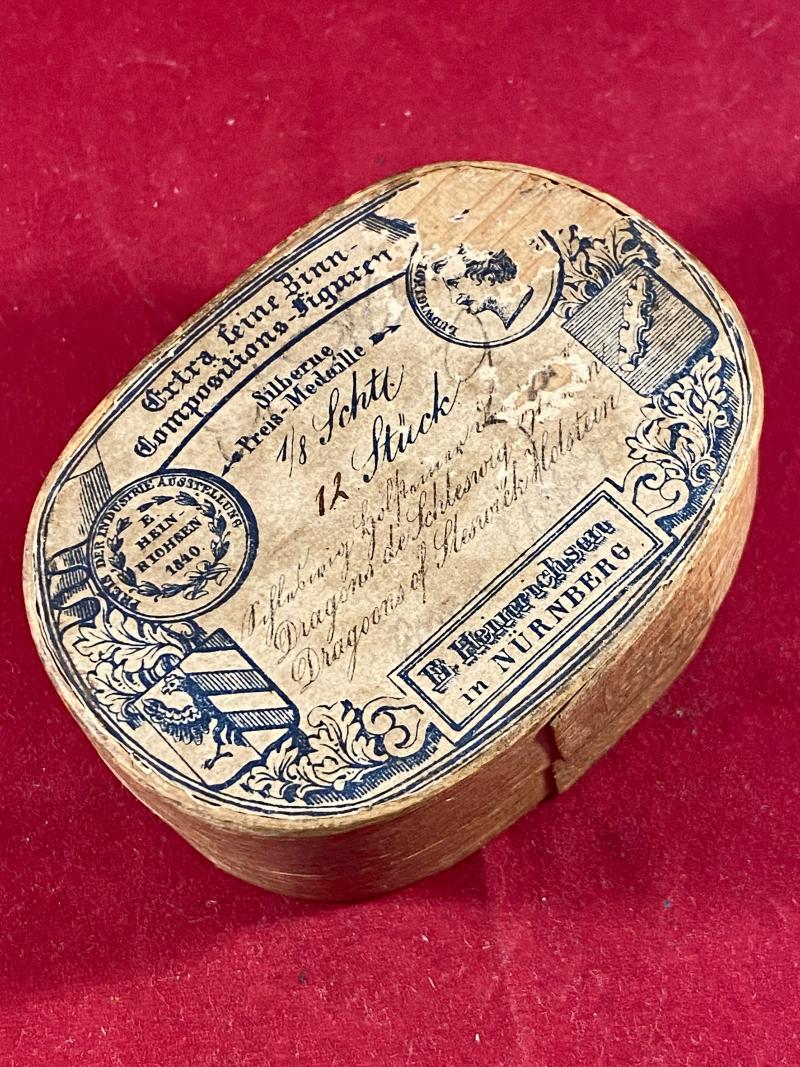 Extra feine Zinn-
Compositions-Figuren
Silberne
Preis-Medaille
LUDWIG I
1/8 Schtl
12 Stück
Dragons de Schleswig
Dragoons of Sleswick Holstein
PREIS DER INDUSTRIE AUSSTELLUNG
E.
HEIN
RICHSEN
1840.
E. Heinrichsen
in NÜRNBERG